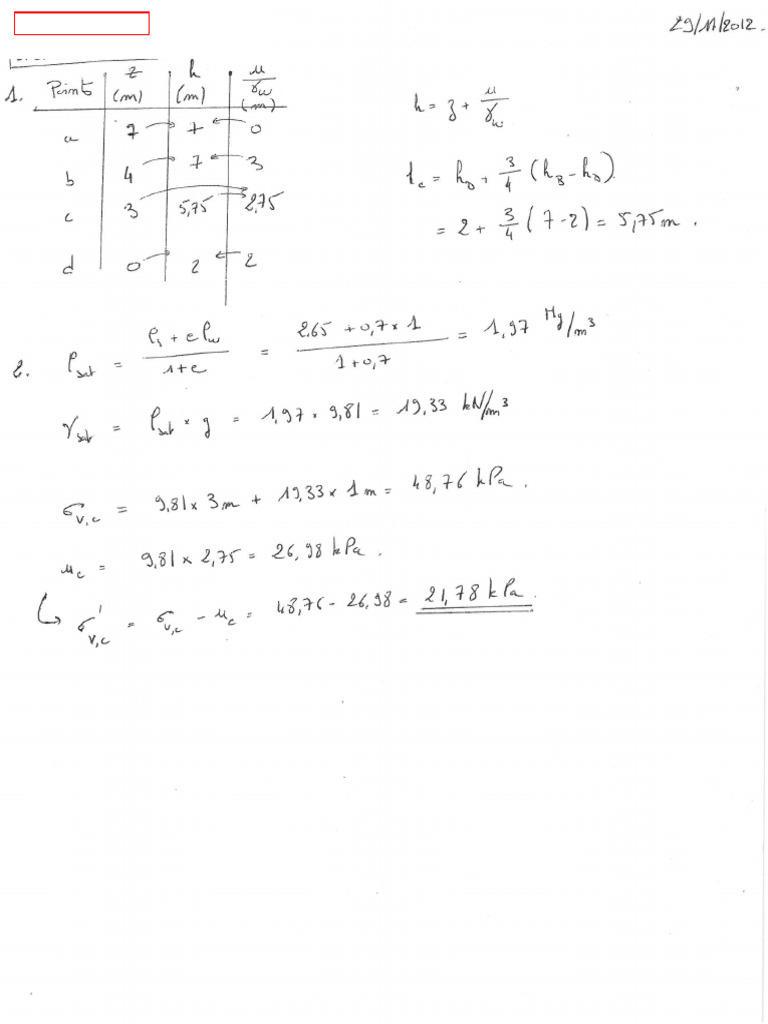 29/11/2012.
1. Points z (m) h (m) u/γw (m)
a 7 7 0
b 4 7 3
c 3 5,75 2,75
d 0 2 2
h = z + u/γw
hc = hD + 3/4 (hB - hD).
= 2 + 3/4 (7-2) = 5,75 m.
2. ρsat = (ρs + e ρw)/(1+e) = (2.65 + 0,7 × 1)/(1+0,7) = 1,97 Mg/m³
γsat = ρsat × g = 1,97 × 9,81 = 19,33 kN/m³
σv,c = 9,81 × 3m + 19,33 × 1m = 48,76 kPa.
uc = 9,81 × 2,75 = 26,98 kPa.
↳ σ'v,c = σv,c - uc = 48,76 - 26,98 = 21,78 kPa.